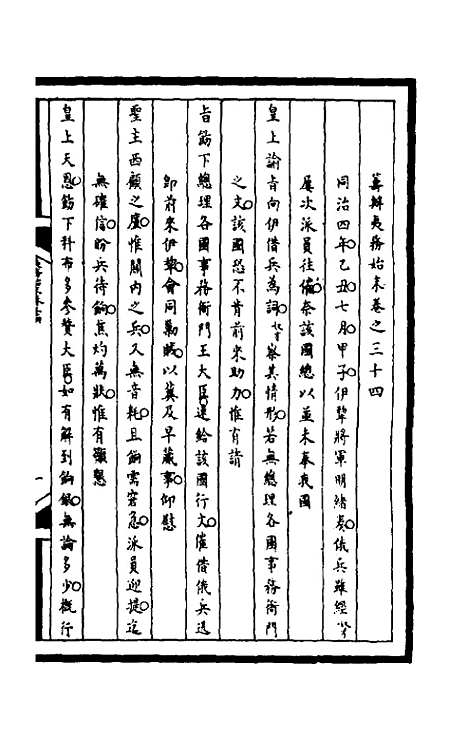 籌辦夷務始末卷之三十四
同治四年乙丑七月甲子伊犂將軍明緒奏俄兵雖經奴才
屢次派員往催奈該國總以並未奉我國
皇上諭旨向伊借兵為詞奴才等察其情形若無總理各國事務衙門
之文該國恐不肯前來助力惟有請
旨飭下總理各國事務衙門王大臣速給該國行文催借俄兵迅
即前來伊犂會同勦賊以冀及早蕆事仰慰
聖主西顧之廑惟關內之兵又無音耗且餉需窘急派員迎提迄
無確信盼兵待餉焦灼萬狀惟有籲懇
皇上天恩飭下科布多參贊大臣如有解到餉銀無論多少概行